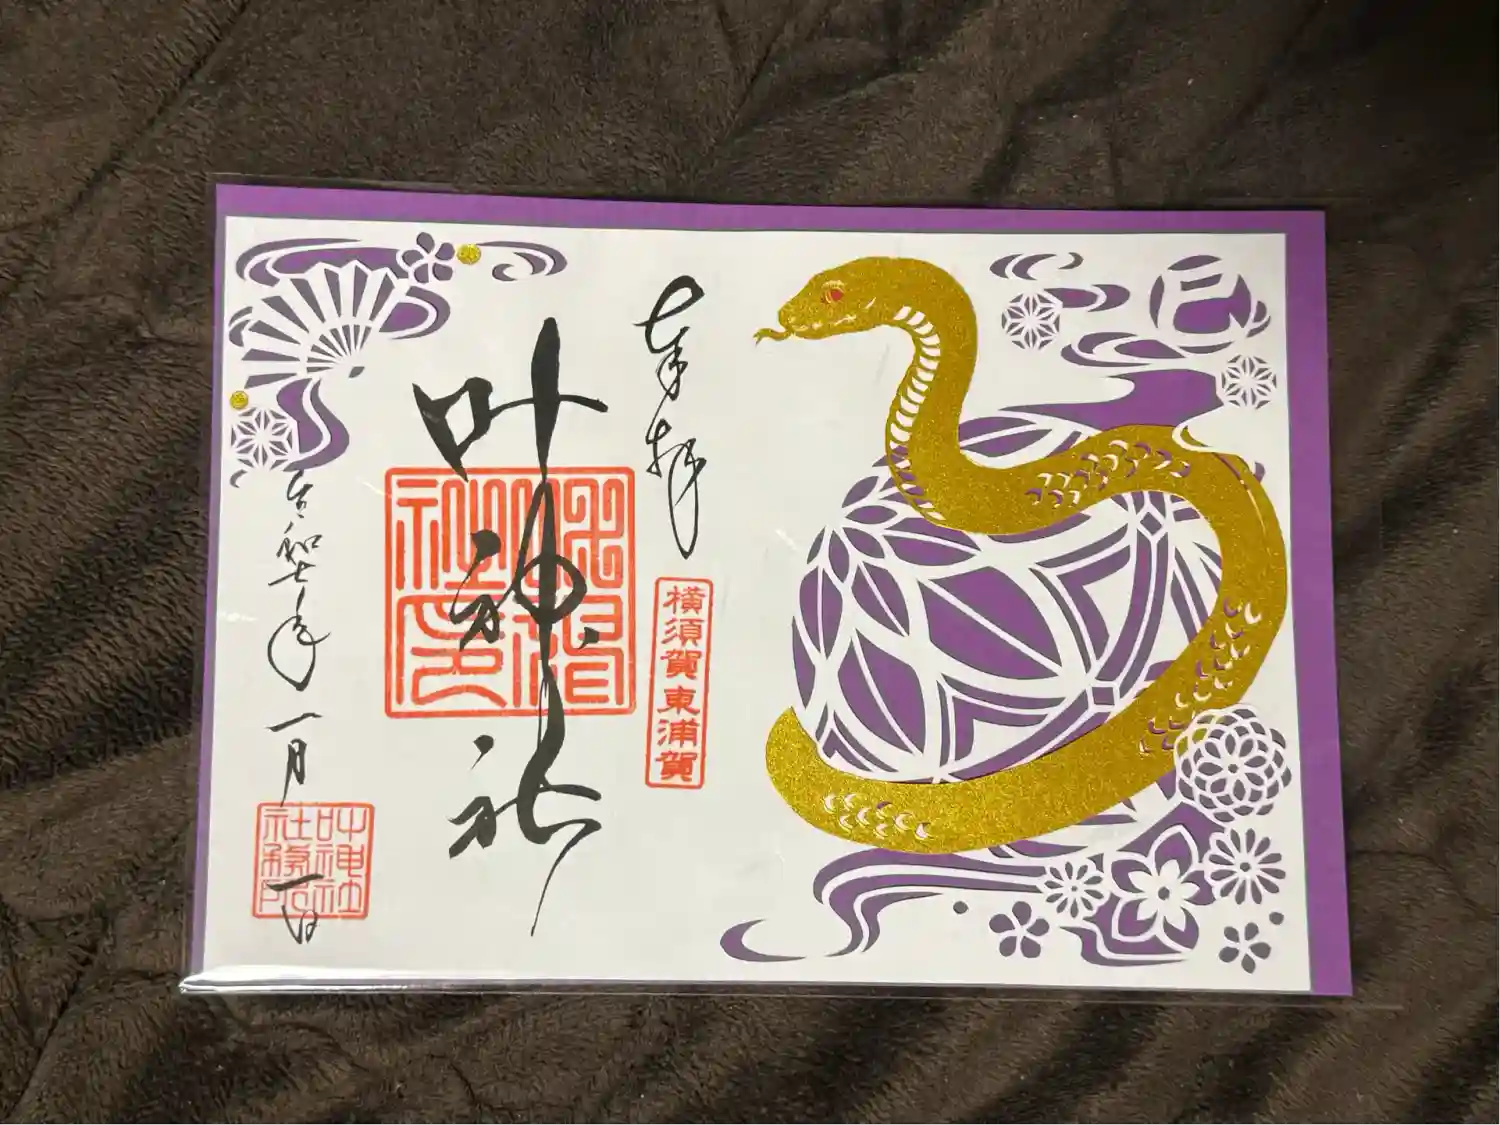 巳
奉拝
横須賀東浦賀
叶神社
令和七年一月一日
叶神社
社務所